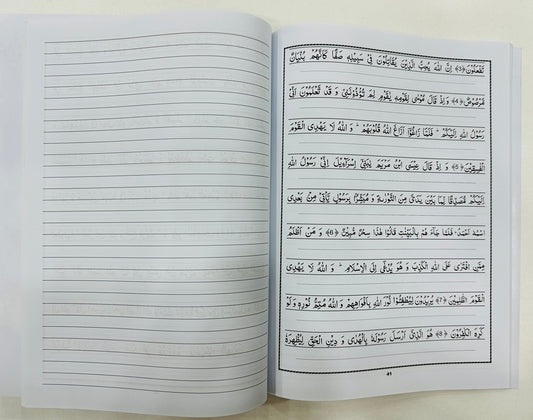 تَفۡعَلُوۡنَ ﴿3﴾ اِنَّ اللّٰهَ يُحِبُّ الَّذِيۡنَ يُقَاتِلُوۡنَ فِىۡ سَبِيۡلِهٖ صَفًّا كَاَنَّهُمۡ بُنۡيَانٌ
مَّرۡصُوۡصٌ ﴿4﴾ وَاِذۡ قَالَ مُوۡسٰى لِقَوۡمِهٖ يٰقَوۡمِ لِمَ تُؤۡذُوۡنَنِىۡ وَ قَدْ تَّعۡلَمُوۡنَ اَنِّىۡ
رَسُوۡلُ اللّٰهِ اِلَيۡكُمۡ‌ؕ فَلَمَّا زَاغُوۡۤا اَزَاغَ اللّٰهُ قُلُوۡبَهُمۡ‌ؕ وَ اللّٰهُ لَا يَهۡدِى الۡقَوۡمَ
الۡفٰسِقِيۡنَ ﴿5﴾ وَ اِذۡ قَالَ عِيۡسَى ابۡنُ مَرۡيَمَ يٰبَنِىۡۤ اِسۡرَآءِيۡلَ اِنِّىۡ رَسُوۡلُ اللّٰهِ
اِلَيۡكُمۡ مُّصَدِّقًا لِّمَا بَيۡنَ يَدَىَّ مِنَ التَّوۡرٰٮةِ وَ مُبَشِّرًۢا بِرَسُوۡلٍ يَّاۡتِىۡ مِنۡۢ بَعۡدِى
اسۡمُهٗۤ اَحۡمَدُ‌ؕ فَلَمَّا جَآءَ هُمۡ بِالۡبَيِّنٰتِ قَالُوۡا هٰذَا سِحۡرٌ مُّبِيۡنٌ ﴿6﴾ وَ مَنۡ اَظۡلَمُ
مِمَّنِ افۡتَرٰى عَلَى اللّٰهِ الۡكَذِبَ وَ هُوَ يُدۡعٰٓى اِلَى الۡاِسۡلَامِ‌ؕ وَ اللّٰهُ لَا يَهۡدِى
الۡقَوۡمَ الظّٰلِمِيۡنَ ﴿7﴾ يُرِيۡدُوۡنَ لِيُطۡفِـُٔـوۡا نُوۡرَ اللّٰهِ بِاَفۡوَاهِهِمۡ وَ اللّٰهُ مُتِمُّ نُوۡرِهٖ وَ لَوۡ
كَرِهَ الۡكٰفِرُوۡنَ ﴿8﴾ هُوَ الَّذِىۡۤ اَرۡسَلَ رَسُوۡلَهٗ بِالۡهُدٰى وَ دِيۡنِ الۡحَـقِّ لِيُظۡهِرَهٗ
41